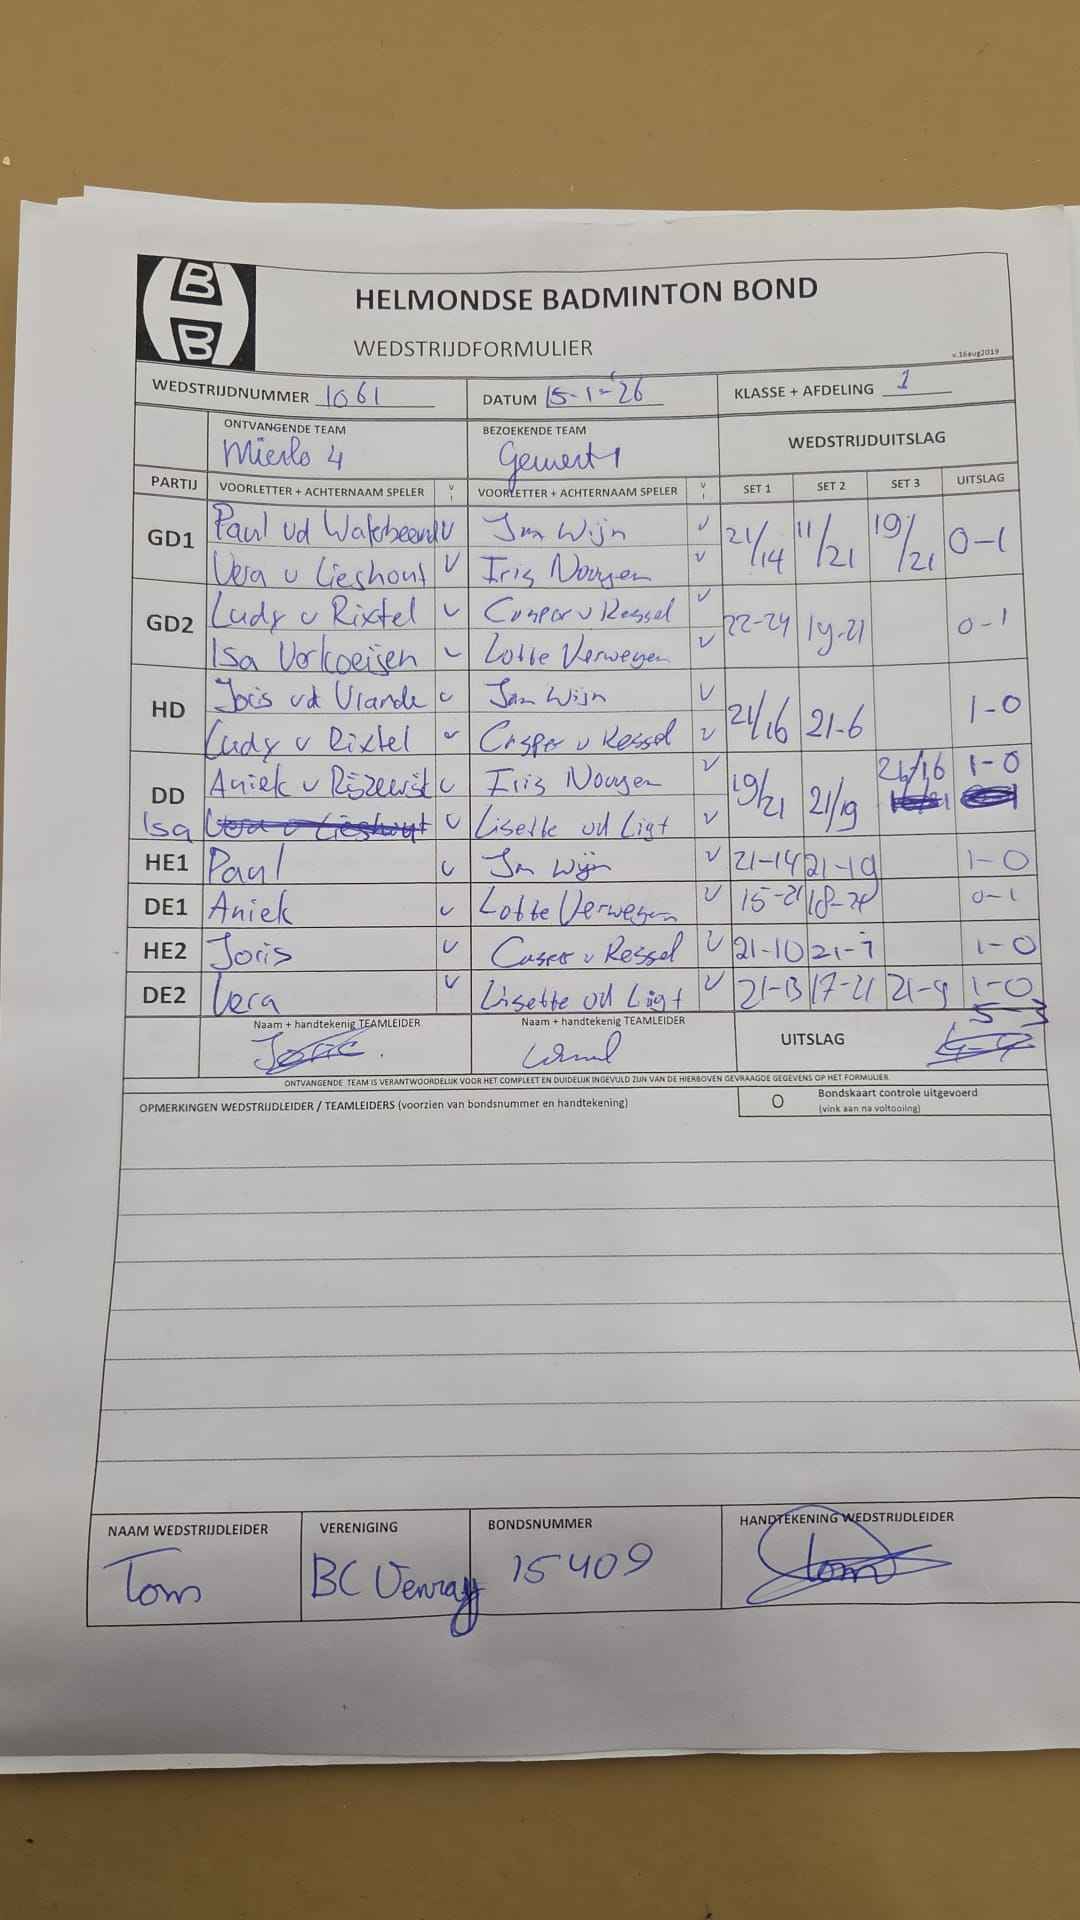 HBB
HELMONDSE BADMINTON BOND
WEDSTRIJDFORMULIER
v.16aug2019
WEDSTRIJDNUMMER 1061 DATUM 15-1-'26 KLASSE + AFDELING 1
ONTVANGENDE TEAM BEZOEKENDE TEAM WEDSTRIJDUITSLAG
Mierlo 4 Gemert 1
PARTIJ VOORLETTER + ACHTERNAAM SPELER V I VOORLETTER + ACHTERNAAM SPELER V I SET 1 SET 2 SET 3 UITSLAG
GD1 Paul vd Waterbeemd v Jan Wijn v 21/14 11/21 19/21 0-1
Vera v Lieshout v Iris Nooyen v
GD2 Ludy v Rixtel v Casper v Kessel v 22-24 19-21 0-1
Isa Verkoeijen v Lotte Verwegen v
HD Joris vd Vrande v Jan Wijn v 21/16 21-6 1-0
Ludy v Rixtel v Casper v Kessel v
DD Aniek v v Iris Nooyen v 19/21 21/19 21/16 1-0
Isa Vera v Lieshout v Lisette vd Ligt v
HE1 Paul v Jan Wijn v 21-14 21-19 1-0
DE1 Aniek v Lotte Verwegen v 15-21 0-1
HE2 Joris v Casper v Kessel v 21-10 21-7 1-0
DE2 Vera v Lisette vd Ligt v 21-13 17-21 21-9 1-0
Naam + handtekenig TEAMLEIDER Naam + handtekenig TEAMLEIDER UITSLAG 5-3
Joris 4-4
ONTVANGENDE TEAM IS VERANTWOORDELIJK VOOR HET COMPLEET EN DUIDELIJK INGEVULD ZIJN VAN DE HIERBOVEN GEVRAAGDE GEGEVENS OP HET FORMULIER.
OPMERKINGEN WEDSTRIJDLEIDER / TEAMLEIDERS (voorzien van bondsnummer en handtekening) O Bondskaart controle uitgevoerd
(vink aan na voltooiing)
NAAM WEDSTRIJDLEIDER VERENIGING BONDSNUMMER HANDTEKENING WEDSTRIJDLEIDER
Tom BC Venray 15409 Tom